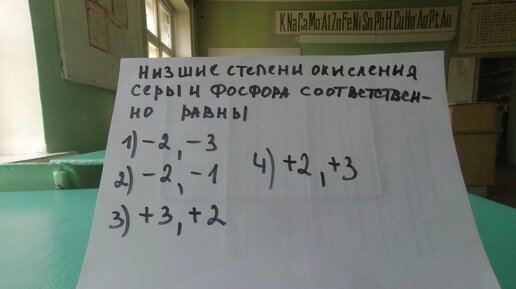 K Na Ca Mg Al Zn Fe Ni Sn Pb H Cu Hg Ag Pt Au
НИЗШИЕ СТЕПЕНИ ОКИСЛЕНИЯ
СЕРЫ И ФОСФОРА СООТВЕТСТВЕН-
НО РАВНЫ
1) -2, -3
2) -2, -1
3) +3, +2
4) +2, +3